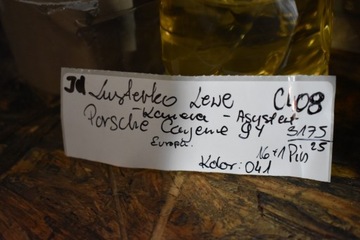 Lusterko Lewe C408
-Kamera - Asystent
Porsche Cayenne 94 3175
Europa. 25
16+1 Pin
Kolor: 041